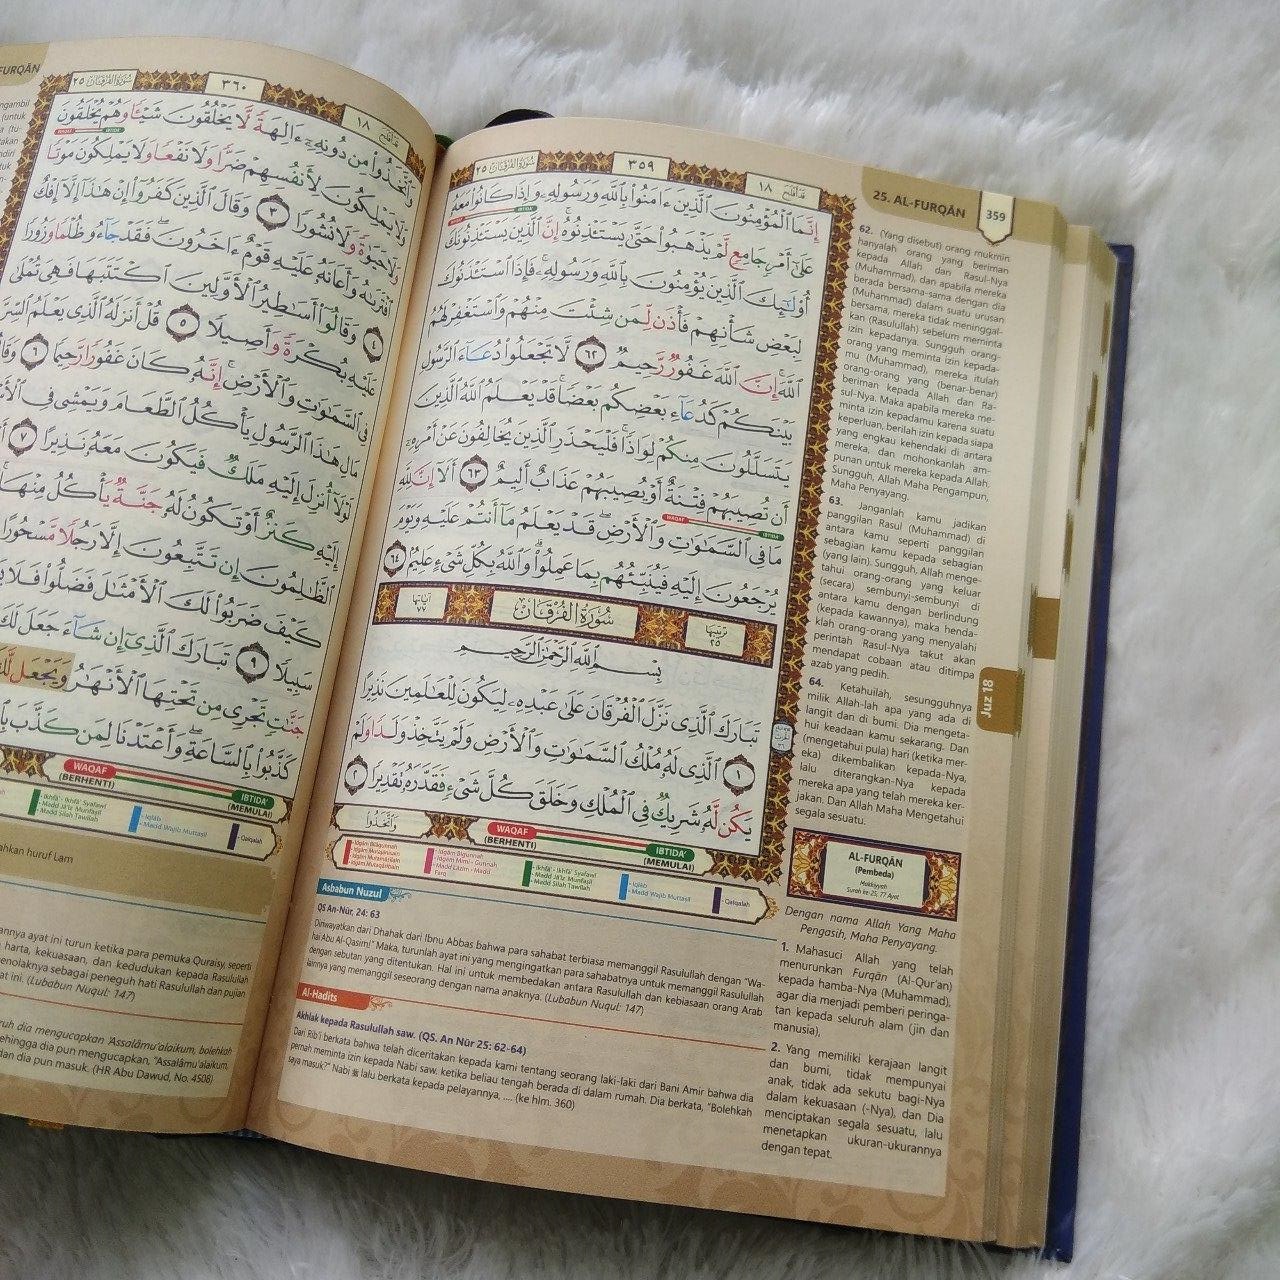 سُورَةُ الْفُرْقَان ٢٥
٣٥٩
قَدْ أَفْلَحَ ١٨
25. AL-FURQĀN
359
إِنَّمَا الْمُؤْمِنُونَ الَّذِينَ ءَامَنُوا۟ بِاللَّهِ وَرَسُولِهِۦ وَإِذَا كَانُوا۟ مَعَهُۥ
عَلَىٰٓ أَمْرٍ جَامِعٍ لَّمْ يَذْهَبُوا۟ حَتَّىٰ يَسْتَـْٔذِنُوهُ ۚ إِنَّ الَّذِينَ يَسْتَـْٔذِنُونَكَ
أُو۟لَٰٓئِكَ الَّذِينَ يُؤْمِنُونَ بِاللَّهِ وَرَسُولِهِۦ ۚ فَإِذَا اسْتَـْٔذَنُوكَ
لِبَعْضِ شَأْنِهِمْ فَأْذَن لِّمَن شِئْتَ مِنْهُمْ وَاسْتَغْفِرْ لَهُمُ
اللَّهَ ۚ إِنَّ اللَّهَ غَفُورٌ رَّحِيمٌ ٦٢ لَّا تَجْعَلُوا۟ دُعَآءَ الرَّسُولِ
بَيْنَكُمْ كَدُعَآءِ بَعْضِكُم بَعْضًا ۚ قَدْ يَعْلَمُ اللَّهُ الَّذِينَ
يَتَسَلَّلُونَ مِنكُمْ لِوَاذًا ۚ فَلْيَحْذَرِ الَّذِينَ يُخَالِفُونَ عَنْ أَمْرِهِۦٓ
أَن تُصِيبَهُمْ فِتْنَةٌ أَوْ يُصِيبَهُمْ عَذَابٌ أَلِيمٌ ٦٣ أَلَآ إِنَّ لِلَّهِ
مَا فِى السَّمَٰوَٰتِ وَالْأَرْضِ ۖ قَدْ يَعْلَمُ مَآ أَنتُمْ عَلَيْهِ وَيَوْمَ
يُرْجَعُونَ إِلَيْهِ فَيُنَبِّئُهُم بِمَا عَمِلُوا۟ ۗ وَاللَّهُ بِكُلِّ شَىْءٍ عَلِيمٌۢ ٦٤
تَرْتِيبُهَا ٢٥
سُورَةُ الْفُرْقَانِ
آيَاتُهَا ٧٧
بِسْمِ اللَّهِ الرَّحْمَٰنِ الرَّحِيمِ
تَبَارَكَ الَّذِى نَزَّلَ الْفُرْقَانَ عَلَىٰ عَبْدِهِۦ لِيَكُونَ لِلْعَٰلَمِينَ نَذِيرًا
١ الَّذِى لَهُۥ مُلْكُ السَّمَٰوَٰتِ وَالْأَرْضِ وَلَمْ يَتَّخِذْ وَلَدًا وَلَمْ
يَكُن لَّهُۥ شَرِيكٌ فِى الْمُلْكِ وَخَلَقَ كُلَّ شَىْءٍ فَقَدَّرَهُۥ تَقْدِيرًا ٢
وَاتَّخَذُوا۟
WAQAF
(BERHENTI)
IBTIDA'
(MEMULAI)
- Iqlāb
- Madd Wajib Muttasil
- Qalqalah
Asbabun Nuzul
QS An-Nūr, 24: 63
Diriwayatkan dari Dhahak dari Ibnu Abbas bahwa para sahabat terbiasa memanggil Rasulullah dengan "Wa-
hai Abu Al-Qasim!" Maka, turunlah ayat ini yang mengingatkan para sahabatnya untuk memanggil Rasulullah
dengan sebutan yang ditentukan. Hal ini untuk membedakan antara Rasulullah dan kebiasaan orang Arab
lainnya yang memanggil seseorang dengan nama anaknya. (Lubabun Nuqul: 147)
Al-Hadits
Akhlak kepada Rasulullah saw. (QS. An Nūr 25: 62-64)
Dari Rib'i berkata bahwa telah diceritakan kepada kami tentang seorang laki-laki dari Bani Amir bahwa dia
pernah meminta izin kepada Nabi saw. ketika beliau tengah berada di dalam rumah. Dia berkata, "Bolehkah
saya masuk?" Nabi ﷺ lalu berkata kepada pelayannya, .... (ke hlm. 360)
62. (Yang disebut) orang mukmin
hanyalah orang yang beriman
kepada Allah dan Rasul-Nya
(Muhammad), dan apabila mereka
berada bersama-sama dengan dia
(Muhammad) dalam suatu urusan
bersama, mereka tidak meninggal-
kan (Rasulullah) sebelum meminta
izin kepadanya. Sungguh orang-
orang yang meminta izin kepada-
mu (Muhammad), mereka itulah
orang-orang yang (benar-benar)
beriman kepada Allah dan Ra-
sul-Nya. Maka apabila mereka me-
minta izin kepadamu karena suatu
keperluan, berilah izin kepada siapa
yang engkau kehendaki di antara
mereka, dan mohonkanlah am-
punan untuk mereka kepada Allah.
Sungguh, Allah Maha Pengampun,
Maha Penyayang.
63. Janganlah kamu jadikan
panggilan Rasul (Muhammad) di
antara kamu seperti panggilan
sebagian kamu kepada sebagian
(yang lain). Sungguh, Allah menge-
tahui orang-orang yang keluar
(secara) sembunyi-sembunyi di
antara kamu dengan berlindung
(kepada kawannya), maka henda-
klah orang-orang yang menyalahi
perintah Rasul-Nya takut akan
mendapat cobaan atau ditimpa
azab yang pedih.
64. Ketahuilah, sesungguhnya
milik Allah-lah apa yang ada di
langit dan di bumi. Dia mengeta-
hui keadaan kamu sekarang. Dan
(mengetahui pula) hari (ketika mer-
eka) dikembalikan kepada-Nya,
lalu diterangkan-Nya kepada
mereka apa yang telah mereka ker-
jakan. Dan Allah Maha Mengetahui
segala sesuatu.
AL-FURQĀN
(Pembeda)
Makkiyyah
Surah ke: 25, 77 Ayat
Dengan nama Allah Yang Maha
Pengasih, Maha Penyayang.
1. Mahasuci Allah yang telah
menurunkan Furqān (Al-Qur'an)
kepada hamba-Nya (Muhammad),
agar dia menjadi pemberi peringa-
tan kepada seluruh alam (jin dan
manusia),
2. Yang memiliki kerajaan langit
dan bumi, tidak mempunyai
anak, tidak ada sekutu bagi-Nya
dalam kekuasaan (-Nya), dan Dia
menciptakan segala sesuatu, lalu
menetapkan ukuran-ukurannya
dengan tepat.
Juz 18
FURQĀN
سُورَةُ الْفُرْقَان ٢٥
٣٦٠
قَدْ أَفْلَحَ ١٨
وَاتَّخَذُوا۟ مِن دُونِهِۦٓ ءَالِهَةً لَّا يَخْلُقُونَ شَيْـًٔا وَهُمْ يُخْلَقُونَ
وَلَا يَمْلِكُونَ لِأَنفُسِهِمْ ضَرًّا وَلَا نَفْعًا وَلَا يَمْلِكُونَ مَوْتًا
وَلَا حَيَوٰةً وَلَا نُشُورًا ٣ وَقَالَ الَّذِينَ كَفَرُوٓا۟ إِنْ هَٰذَآ إِلَّآ إِفْكٌ
افْتَرَىٰهُ وَأَعَانَهُۥ عَلَيْهِ قَوْمٌ ءَاخَرُونَ ۖ فَقَدْ جَآءُو ظُلْمًا وَزُورًا
٤ وَقَالُوٓا۟ أَسَٰطِيرُ الْأَوَّلِينَ اكْتَتَبَهَا فَهِىَ تُمْلَىٰ
عَلَيْهِ بُكْرَةً وَأَصِيلًا ٥ قُلْ أَنزَلَهُ الَّذِى يَعْلَمُ السِّرَّ
فِى السَّمَٰوَٰتِ وَالْأَرْضِ ۚ إِنَّهُۥ كَانَ غَفُورًا رَّحِيمًا ٦
مَالِ هَٰذَا الرَّسُولِ يَأْكُلُ الطَّعَامَ وَيَمْشِى فِى
لَوْلَآ أُنزِلَ إِلَيْهِ مَلَكٌ فَيَكُونَ مَعَهُۥ نَذِيرًا ٧
إِلَيْهِ كَنزٌ أَوْ تَكُونُ لَهُۥ جَنَّةٌ يَأْكُلُ مِنْهَا
الظَّٰلِمُونَ إِن تَتَّبِعُونَ إِلَّا رَجُلًا مَّسْحُورًا
كَيْفَ ضَرَبُوا۟ لَكَ الْأَمْثَٰلَ فَضَلُّوا۟ فَلَا
سَبِيلًا ٩ تَبَارَكَ الَّذِىٓ إِن شَآءَ جَعَلَ لَكَ
جَنَّٰتٍ تَجْرِى مِن تَحْتِهَا الْأَنْهَٰرُ وَيَجْعَل
كَذَّبُوا۟ بِالسَّاعَةِ ۖ وَأَعْتَدْنَا لِمَن كَذَّبَ
WAQAF
(BERHENTI)
IBTIDA'
(MEMULAI)
- Ikhfā' - Ikhfā' Syafawī
- Iqlāb
- Madd Wajib Muttasil
- Qalqalah
huruf Lam
ayat ini turun ketika para pemuka Quraisy, seperti
harta, kekuasaan, dan kedudukan kepada Rasulullah
sebagai peneguh hati Rasulullah dan pujian
ini. (Lubabun Nuqul: 147)
dia mengucapkan 'Assalāmu'alaikum, bolehkah
dia pun mengucapkan, "Assalāmu'alaikum,
dan dia pun masuk. (HR Abu Dawud, No. 4508)